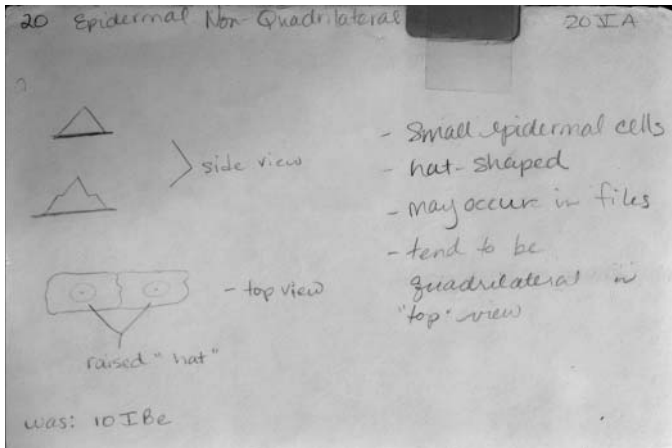 20 Epidermal Non-Quadrilateral
20 I A
side view
- top view
raised "hat"
was: 10 I B e
- Small epidermal cells
- hat-shaped
- may occur in files
- tend to be
quadrilateral in
"top" view